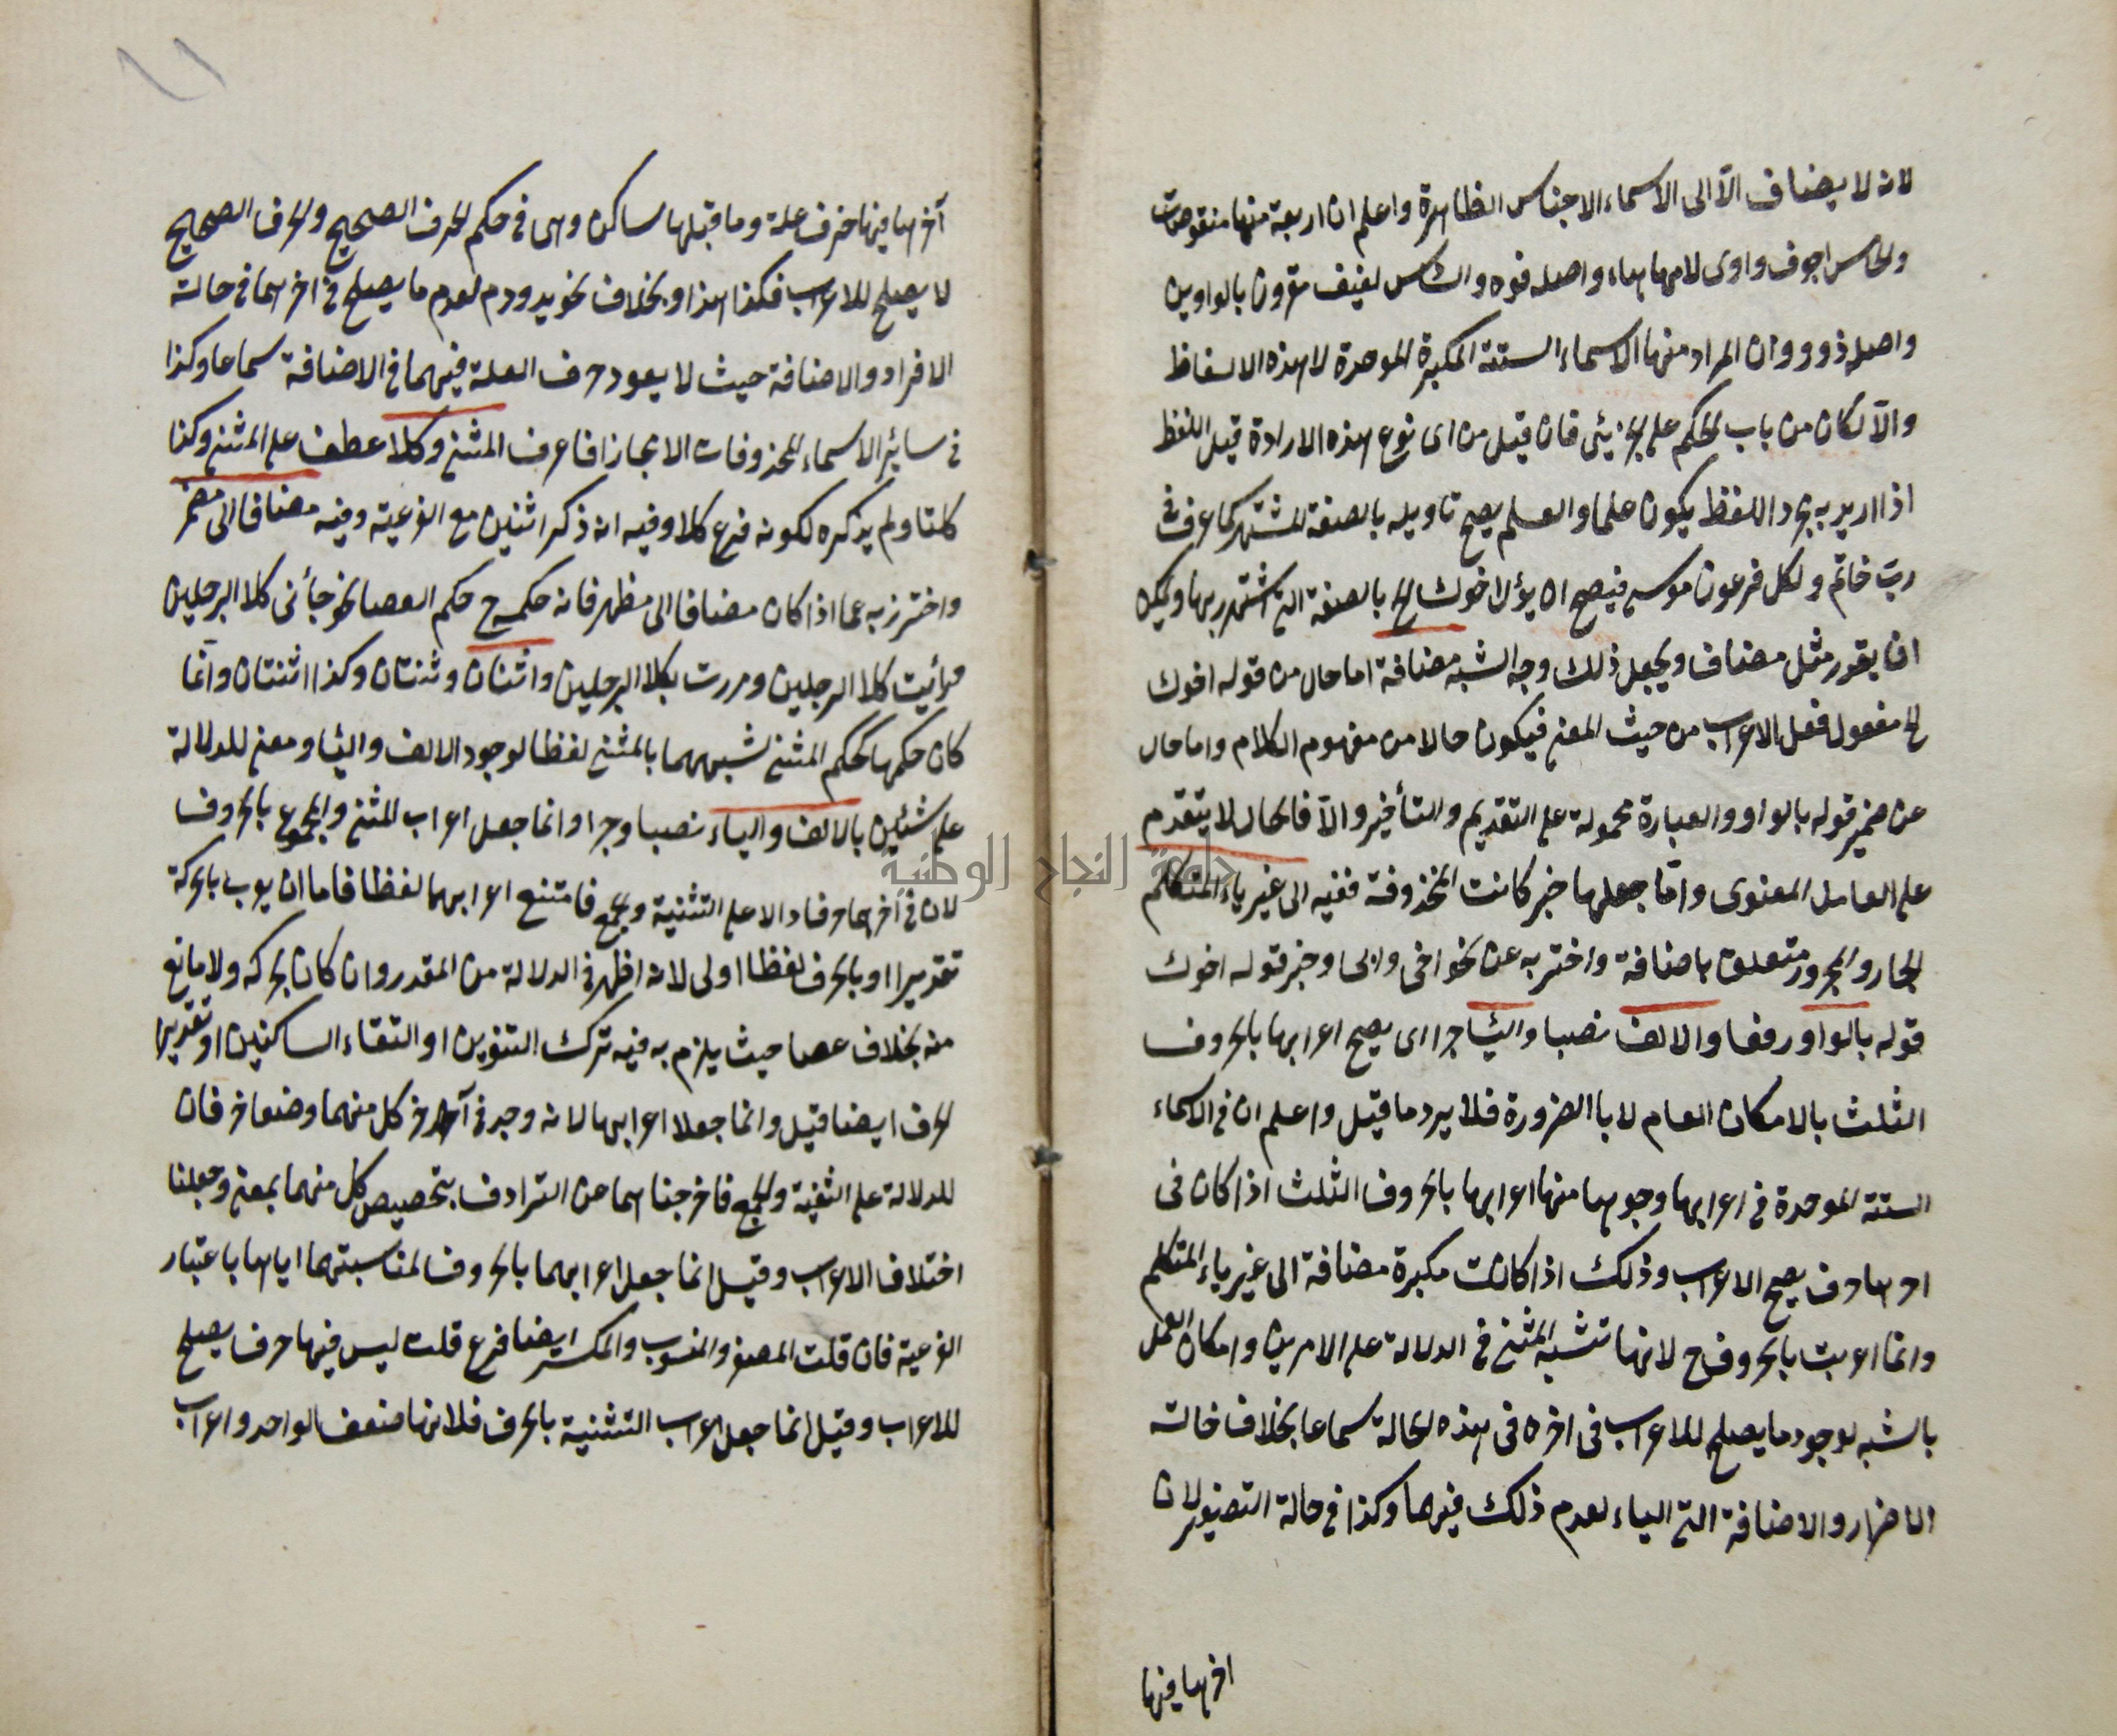 لانه لا يضاف الّا الى الاسماء الاجناس الظاهرة واعلم ان اربعة منها منقوصات
ولخامس اجوف واوى لامها هاء واصله فوه والسادس لفيف مقرون بالواوين
واصله ذوو وان المراد منها الاسماء الستة المكبرة الموحدة لا هذه الالفاظ
والّا لكان من باب الحكم على الجزئى فان قيل من اى نوع هذه الارادة قيل اللفظ
اذا اريد به مجرد اللفظ يكون علما والعلم يصح تاويله بالصفة المشتهر كما عرف فى
ربّ خاتم ولكل فرعون موسى فيصح ان يؤل اخوك الخ بالصفة التى اشتهر بها ويمكن
ان يقدر مثل مضاف ويجعل ذلك وجه الشبه مضافة اما حال من قوله اخوك
الخ مفعول فعل الاعراب من حيث المعنى فيكون حالا من مفهوم الكلام واما حال
عن ضمير قوله بالواو والعبارة محمولة على التقديم والتأخير والّا فالحال لا يتقدم
على العامل المعنوى وامّا جعلها خبر كانت المحذوفة ففيه الى غير ياء المتكلم
الجار والمجرور متعلق باضافة واحترز به عن نحو اخى وابى وخبر قوله اخوك
قوله بالواو رفعا والالف نصبا والياء جرا اى يصح اعرابها بالحروف
الثلث بالامكان العام لا باالضرورة فلا يرد ما قيل واعلم ان فى الاسماء
الستة الموحدة فى اعرابها وجوها منها اعرابها بالحروف الثلث اذا كان فى
اخرها حرف يصح الاعراب وذلك اذا كانت مكبرة مضافة الى غير ياء المتكلم
وانما اعربت بالحروف ح لانها تشبه المثنى فى الدلالة على الامرين وامكان العمل
بالشبه لوجود ما يصلح للاعراب فى اخره فى هذه الحالة سماعا بخلاف حالة
الاضمار والاضافة الى الياء لعدم ذلك فيها وكذا فى حالة التصغير لان
اخرها فيها
جامعة النجاح الوطنية
آخرها فيها حرف علة وما قبلها ساكن وهى فى حكم الحرف الصحيح والحرف الصحيح
لا يصلح للاعراب فكذا هذا وبخلاف نحو يد ودم لعدم ما يصلح فى اخرهما فى حالة
الافراد والاضافة حيث لا يعود حرف العلة فيهما فى الاضافة سماعا وكذا
فى سائر الاسماء المحذوفات الاعجاز فاعرف المثنى وكلا عطف على المثنى وكذا
كلتا ولم يذكره لكونه فرع كلا وفيه انه ذكر اثنين مع الفرعية وفيه مضافا الى مضمر
واحترز به عما اذا كان مضافا الى مظهر فانه حكمه ح حكم العصا نحو جأنى كلا الرجلين
ورأيت كلا الرجلين ومررت بكلا الرجلين واثنان وثنتان وكذا اثنتان وانّما
كان حكمها كحكم المثنى لشبههما بالمثنى لفظا لوجود الالف والياء ومعنى للدلالة
على شئين بالالف والياء نصبا وجرا وانما جعل اعراب المثنى والمجموع بالحروف
لان فى آخرهما حرفا دالا على التثنية والجمع فامتنع اعرابهما لفظا فاما ان يعرب بالحركة
تقديرا او بالحرف لفظا اولى لانه اظهر فى الدلالة من المقدر وان كان بحركه ولا مانع
منه بخلاف عصا حيث يلزم به فيه ترك التنوين او التقاء الساكنين او تقديرا
لحرف ايضا قيل وانما جعلا اعرابها لانه وجد فى آخر كل منهما وضعا حرفان
للدلالة على التثنية والجمع فاخرجناهما عن الترادف بتخصيص كل منهما بمعنى وجعلنا
اختلاف الاعراب وقيل انما جعل اعرابهما بالحروف لمناسبتهما اياها باعتبار
الفرعية فان قلت المصغر والمنسوب والمكسر ايضا فرع قلت ليس فيها حرف يصلح
للاعراب وقيل انما جعل اعراب التثنية بالحرف فلانها ضعف الواحد واعراب